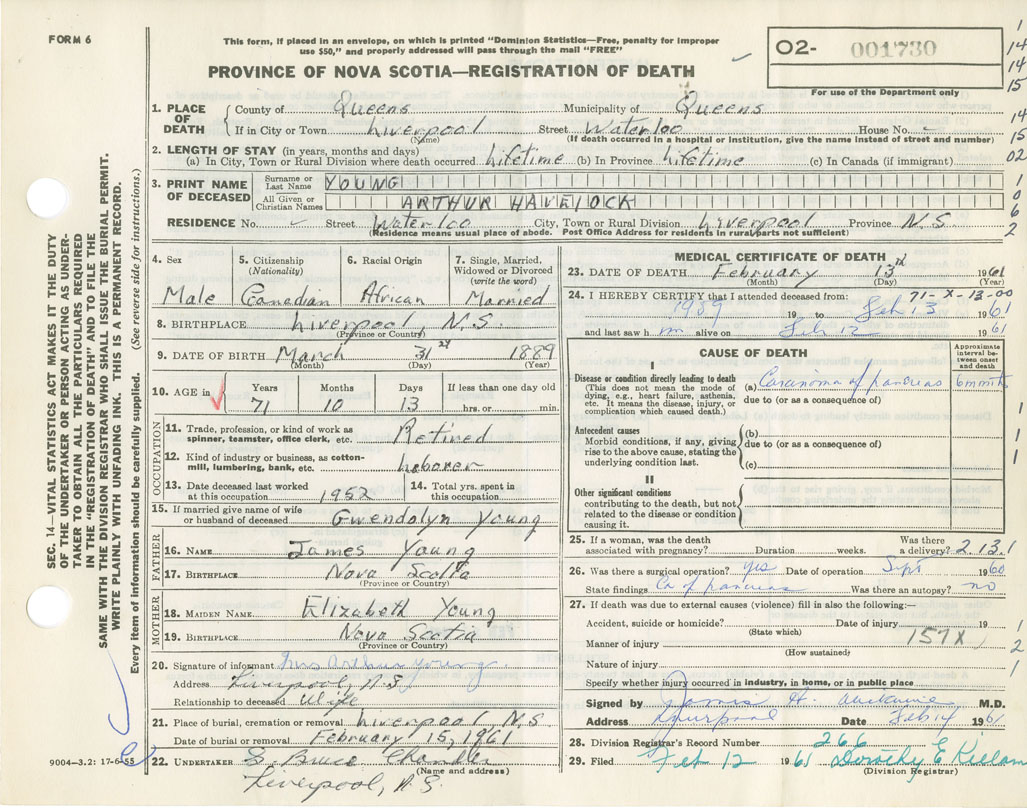 FORM 6
This form, if placed in an envelope, on which is printed "Dominion Statistics—Free, penalty for improper
use $50," and properly addressed will pass through the mail "FREE"
PROVINCE OF NOVA SCOTIA—REGISTRATION OF DEATH
02- 001730
For use of the Department only
1. PLACE OF DEATH { County of Queens Municipality of Queens
If in City or Town Liverpool Street Waterloo House No. -
(Name) (If death occurred in a hospital or institution, give the name instead of street and number)
2. LENGTH OF STAY (in years, months and days)
(a) In City, Town or Rural Division where death occurred Lifetime (b) In Province Lifetime (c) In Canada (if immigrant)
3. PRINT NAME OF DECEASED { Surname or Last Name YOUNG
All Given or Christian Names ARTHUR HAVELOCK
RESIDENCE No. Street Waterloo City, Town or Rural Division Liverpool Province N.S.
(Residence means usual place of abode. Post Office Address for residents in rural parts not sufficient)
4. Sex 5. Citizenship (Nationality) 6. Racial Origin 7. Single, Married, Widowed or Divorced (write the word)
Male Canadian African Married
8. BIRTHPLACE Liverpool, N.S.
(Province or Country)
9. DATE OF BIRTH March 31 1889
(Month) (Day) (Year)
10. AGE in Years Months Days If less than one day old
71 10 13 hrs. or min.
OCCUPATION
11. Trade, profession, or kind of work as spinner, teamster, office clerk, etc. Retired
12. Kind of industry or business, as cotton-mill, lumbering, bank, etc. Laborer
13. Date deceased last worked at this occupation 1952 14. Total yrs. spent in this occupation
15. If married give name of wife or husband of deceased Gwendolyn Young
FATHER
16. NAME James Young
17. BIRTHPLACE Nova Scotia
(Province or Country)
MOTHER
18. MAIDEN NAME Elizabeth Young
19. BIRTHPLACE Nova Scotia
(Province or Country)
20. Signature of informant Mrs Arthur Young.
Address Liverpool, N.S
Relationship to deceased Wife
21. Place of burial, cremation or removal Liverpool N.S.
Date of burial or removal February 15, 1961
22. UNDERTAKER Bruce Chandler
(Name and address)
Liverpool, N.S.
9004—3.2: 17-6-55
SEC. 14—VITAL STATISTICS ACT MAKES IT THE DUTY
OF THE UNDERTAKER OR PERSON ACTING AS UNDER-
TAKER TO OBTAIN ALL THE PARTICULARS REQUIRED
IN THE "REGISTRATION OF DEATH" AND TO FILE THE
SAME WITH THE DIVISION REGISTRAR WHO SHALL ISSUE THE BURIAL PERMIT.
WRITE PLAINLY WITH UNFADING INK. THIS IS A PERMANENT RECORD.
Every item of information should be carefully supplied. (See reverse side for instructions.)
MEDICAL CERTIFICATE OF DEATH
23. DATE OF DEATH February 13 1961
(Month) (Day) (Year)
71-X-13-00
24. I HEREBY CERTIFY that I attended deceased from:
1959 19 to Feb 13 1961
and last saw him alive on Feb 12 1961
CAUSE OF DEATH
Approximate interval between onset and death
I
Disease or condition directly leading to death
(This does not mean the mode of dying, e.g., heart failure, asthenia, etc. It means the disease, injury, or complication which caused death.)
(a) Carcinoma of pancreas 6 mnth
due to (or as a consequence of)
Antecedent causes
Morbid conditions, if any, giving rise to the above cause, stating the underlying condition last.
(b)
due to (or as a consequence of)
(c)
II
Other significant conditions
contributing to the death, but not related to the disease or condition causing it.
25. If a woman, was the death associated with pregnancy? Duration weeks. Was there a delivery? 2.13.1
26. Was there a surgical operation? yes Date of operation Sept 1960
State findings Ca of pancreas Was there an autopsy? no
27. If death was due to external causes (violence) fill in also the following:—
Accident, suicide or homicide? Date of injury 19
(State which)
Manner of injury 157X
(How sustained)
Nature of injury
Specify whether injury occurred in industry, in home, or in public place
Signed by M.D.
Address Liverpool Date Feb 14 1961
28. Division Registrar's Record Number 266
29. Filed Feb 12 1961 Dorothy E Killam
(Division Registrar)
1
14
14
15
14
15
02
1
0
6
2
1
1
1
1
2
1